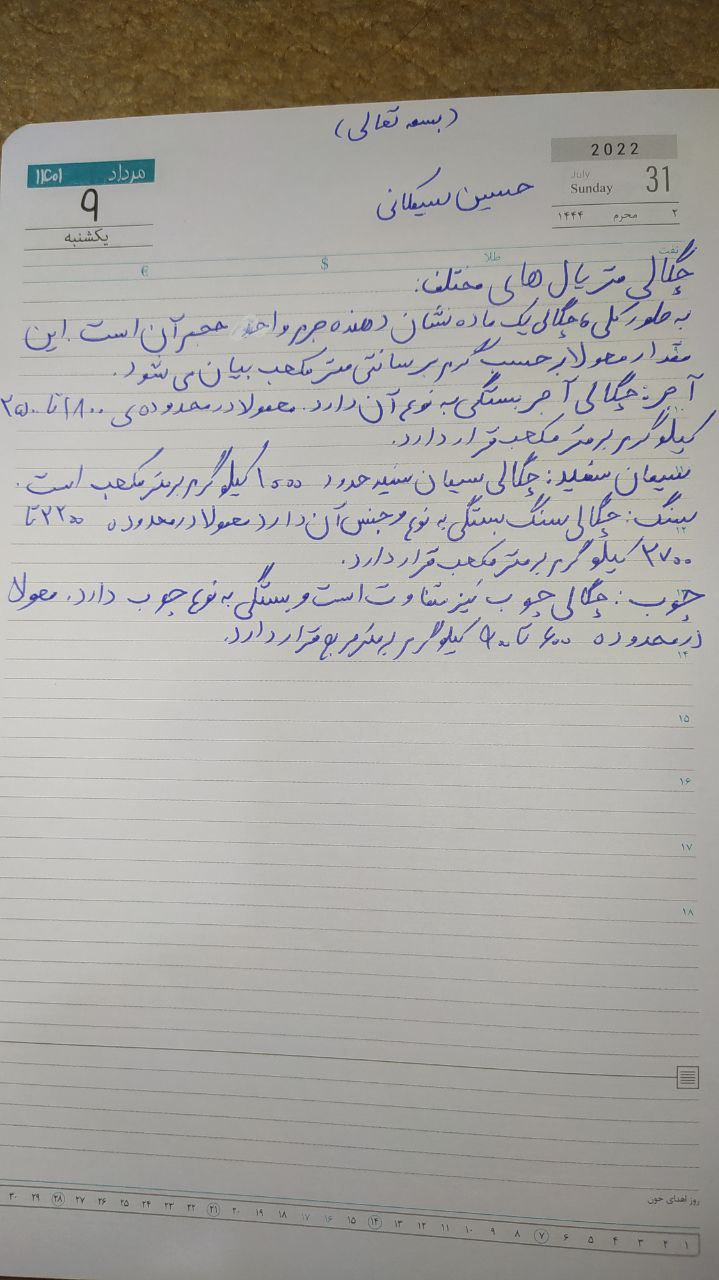 (بسمه تعالی)
2022
July
Sunday
31
۲ محرم ۱۴۴۴
مرداد ۱۴۰۱
۹
یکشنبه
حسین
نفت طلا $ €
چگالی متریال های مختلف:
به طور کلی، چگالی یک ماده نشان دهنده جرم واحد حجم آن است. این
مقدار معمولا بر حسب گرم بر سانتی متر مکعب بیان می شود.
آجر: چگالی آجر بستگی به نوع آن دارد. معمولا در محدوده ی ۱۸۰۰ تا ۲۵۰۰
کیلو گرم بر متر مکعب قرار دارد.
سیمان سفید: چگالی سیمان سفید حدود ۱۰۰۰ کیلو گرم بر متر مکعب است.
سنگ: چگالی سنگ بستگی به نوع و جنس آن دارد معمولا در محدوده ۲۲۰۰ تا
۱۲
۲۷۰۰ کیلو گرم بر متر مکعب قرار دارد.
چوب: چگالی چوب نیز متفاوت است و بستگی به نوع چوب دارد. معمولا
در محدوده ۶۰۰ تا ۹۰۰ کیلو گرم بر متر مربع قرار دارد.
۱۴
۱۵
۱۶
۱۷
۱۸
روز اهدای خون
۱ ۲ ۳ ۴ ۵ ۶ ۷ ۸ ۹ ۱۰ ۱۱ ۱۲ ۱۳ ۱۴ ۱۵ ۱۶ ۱۷ ۱۸ ۱۹ ۲۰ ۲۱ ۲۲ ۲۳ ۲۴ ۲۵ ۲۶ ۲۷ ۲۸ ۲۹ ۳۰